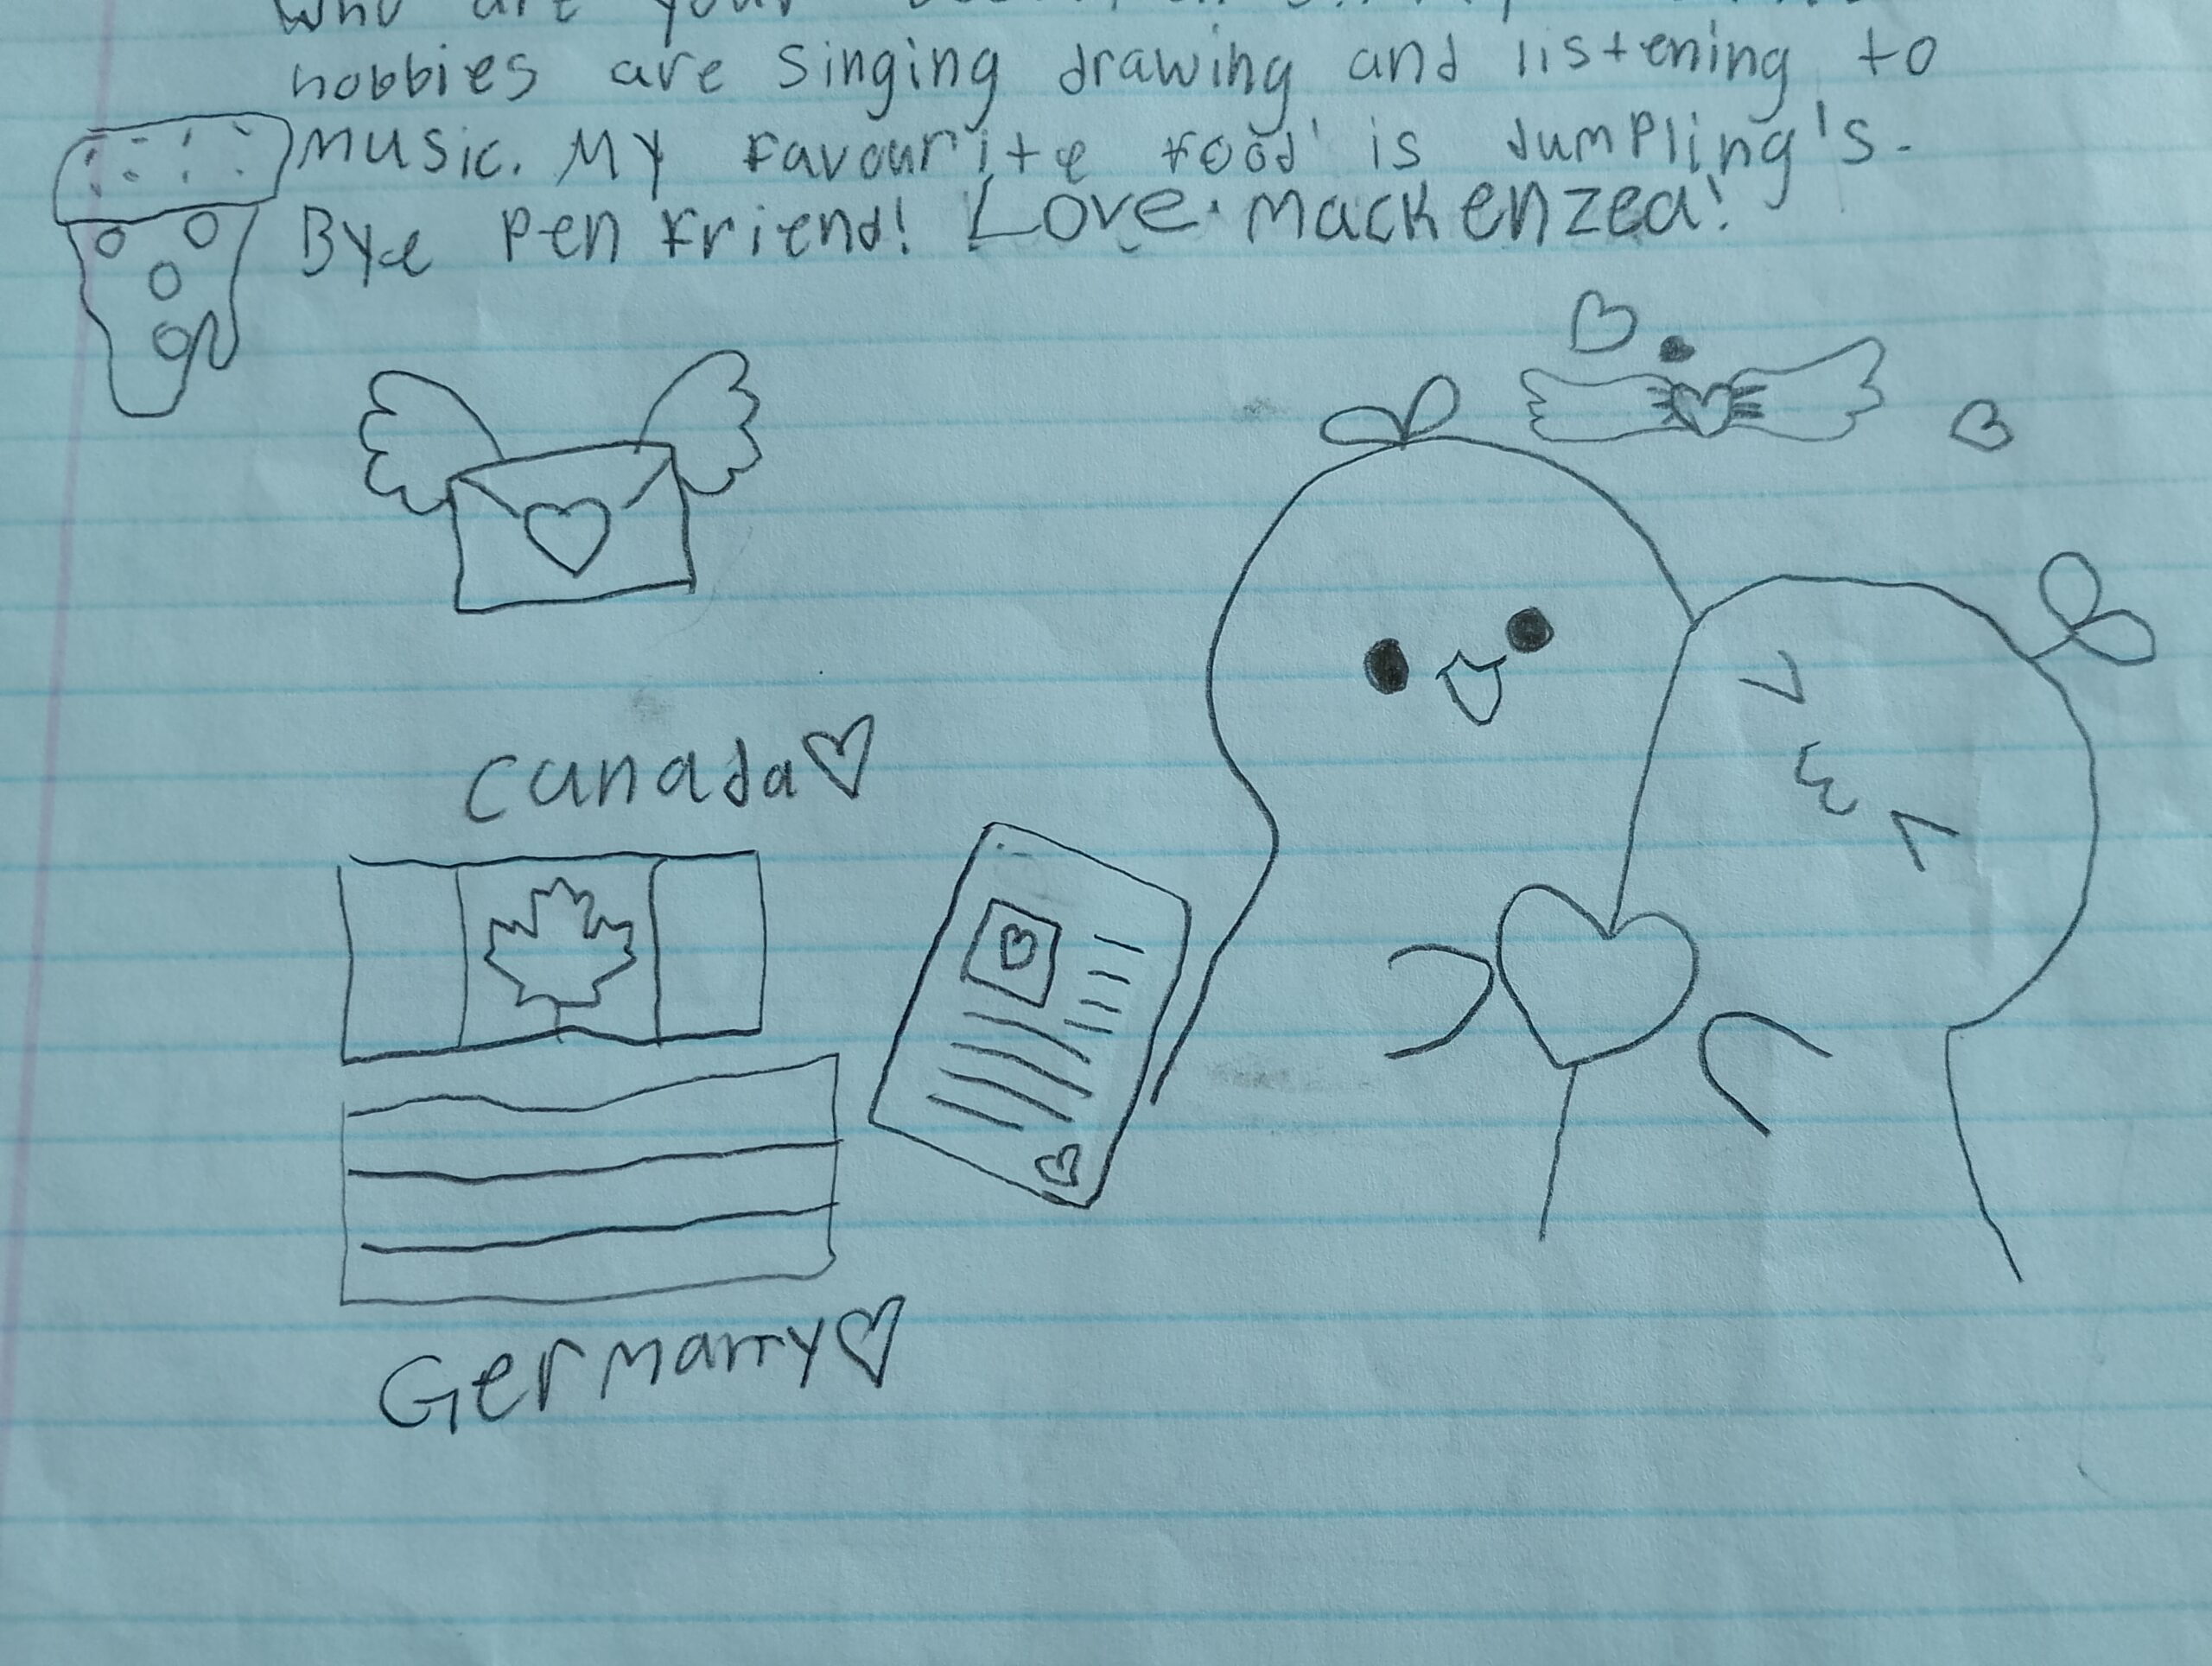 who are your
hobbies are singing drawing and listening to
music. My favourite food is dumpling's.
Bye pen friend! Love Mackenzea!
Canada
Germany